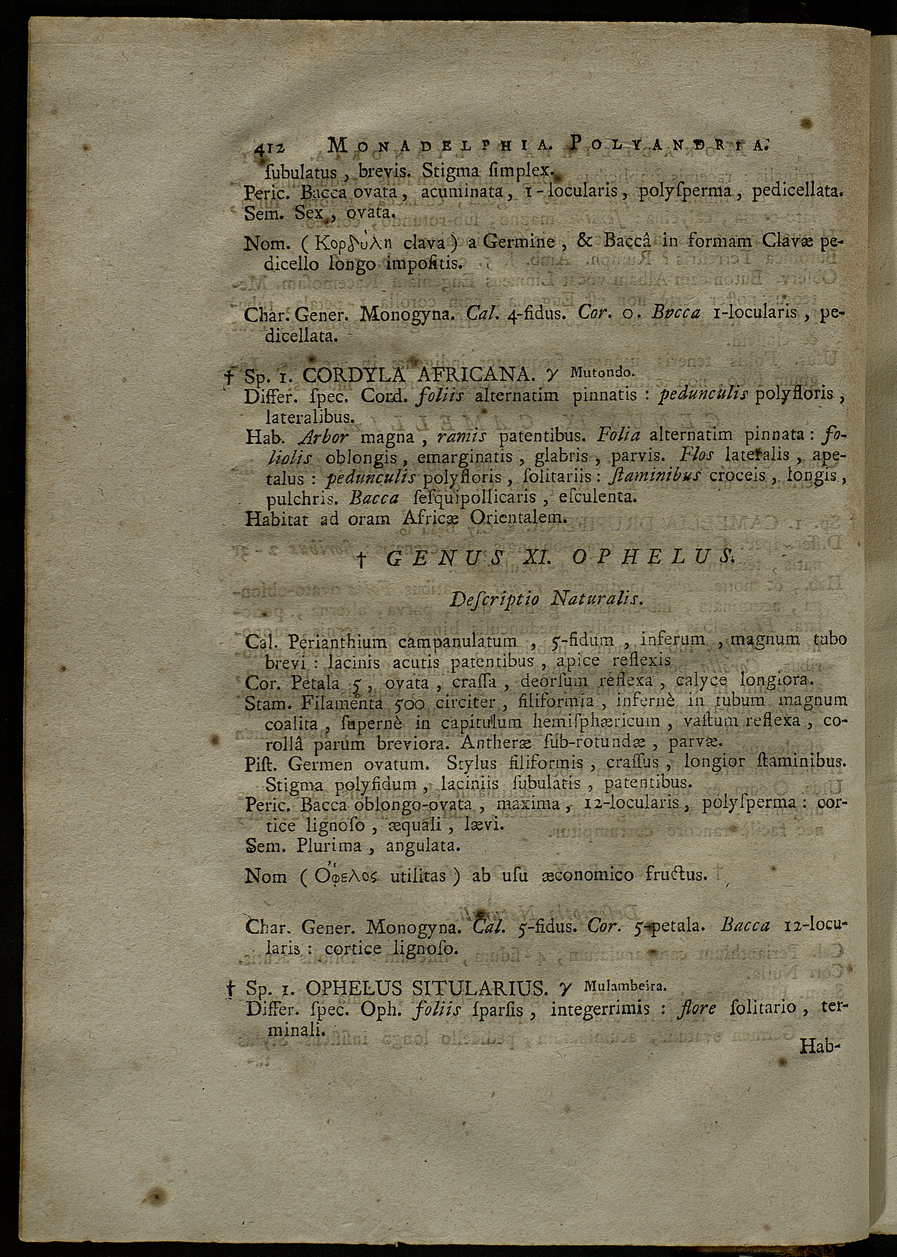 412 MONADELPHIA. POLYANDRIA.
ſubulatus , brevis. Stigma ſimplex.
Peric. Bacca ovata , acuminata , 1-locularis , polyſperma , pedicellata.
Sem. Sex , ovata.
Nom. ( Κορδύλη clava ) a Germine , & Baccâ in formam Clavæ pe-
dicello longo impoſitis.
Char. Gener. Monogyna. Cal. 4-fidus. Cor. 0. Bacca 1-locularis , pe-
dicellata.
† Sp. 1. CORDYLA AFRICANA. γ Mutondo.
Differ. ſpec. Cord. foliis alternatim pinnatis : pedunculis polyfloris ,
lateralibus.
Hab. Arbor magna , ramis patentibus. Folia alternatim pinnata : fo-
liolis oblongis , emarginatis , glabris , parvis. Flos lateralis , ape-
talus : pedunculis polyfloris , ſolitariis : ſtaminibus croceis , longis ,
pulchris. Bacca ſeſquipollicaris , eſculenta.
Habitat ad oram Africæ Orientalem.
† GENUS XI. OPHELUS.
Deſcriptio Naturalis.
Cal. Perianthium campanulatum , 5-fidum , inferum , magnum tubo
brevi : lacinis acutis patentibus , apice reflexis
Cor. Petala 5 , ovata , craſſa , deorſum reflexa , calyce longiora.
Stam. Filamenta 500 circiter , filiformia , infernè in tubum magnum
coalita , ſupernè in capitulum hemiſphæricum , vaſtum reflexa , co-
rollâ parum breviora. Antheræ ſub-rotundæ , parvæ.
Piſt. Germen ovatum. Stylus filiformis , craſſus , longior ſtaminibus.
Stigma polyfidum , laciniis ſubulatis , patentibus.
Peric. Bacca oblongo-ovata , maxima , 12-locularis , polyſperma : cor-
tice lignoſo , æquali , lævi.
Sem. Plurima , angulata.
Nom ( Οφελος utilitas ) ab uſu æconomico fructus.
Char. Gener. Monogyna. Cal. 5-fidus. Cor. 5-petala. Bacca 12-locu-
laris : cortice lignoſo.
† Sp. 1. OPHELUS SITULARIUS. γ Mulambeira.
Differ. ſpec. Oph. foliis ſparſis , integerrimis : flore ſolitario , ter-
minali.
Hab-